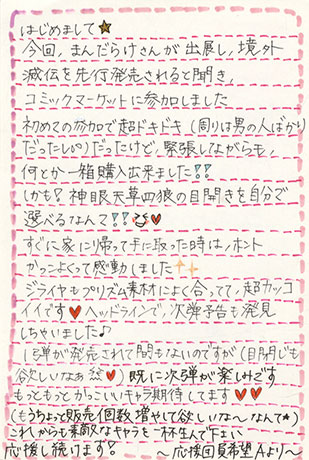 はじめまして★
今回、まんだらけさんが出展し、境外
滅伝を先行発売されると聞き、
コミックマーケットに参加しました
初めての参加で超ドキドキ(周りは男の人ばかり
だったし(°°))だったけど、緊張しながらも、
何とか一箱購入出来ました!!
しかも?神眼天草四狼の目開きを自分で
選べるなんて!!♥
すぐに家に帰って手に取った時は、ホント
かっこよくって感動しました
ジライヤもプリズム素材によく合ってて、超カッコ
イイです♥ヘッドラインで、次弾予告も発見
しちゃいました♪
1弾が発売されて間もないのですが(目閉じも
欲しいなぁ♥)既に次弾が楽しみです
もっともっとかっこいいキャラ期待してます♥♥
(もうちょっと販売個数増やして欲しいな〜なんて★)
これからも素敵なキャラを一杯生んで下さい
応援し続けます!〜応援団員希望Aより〜